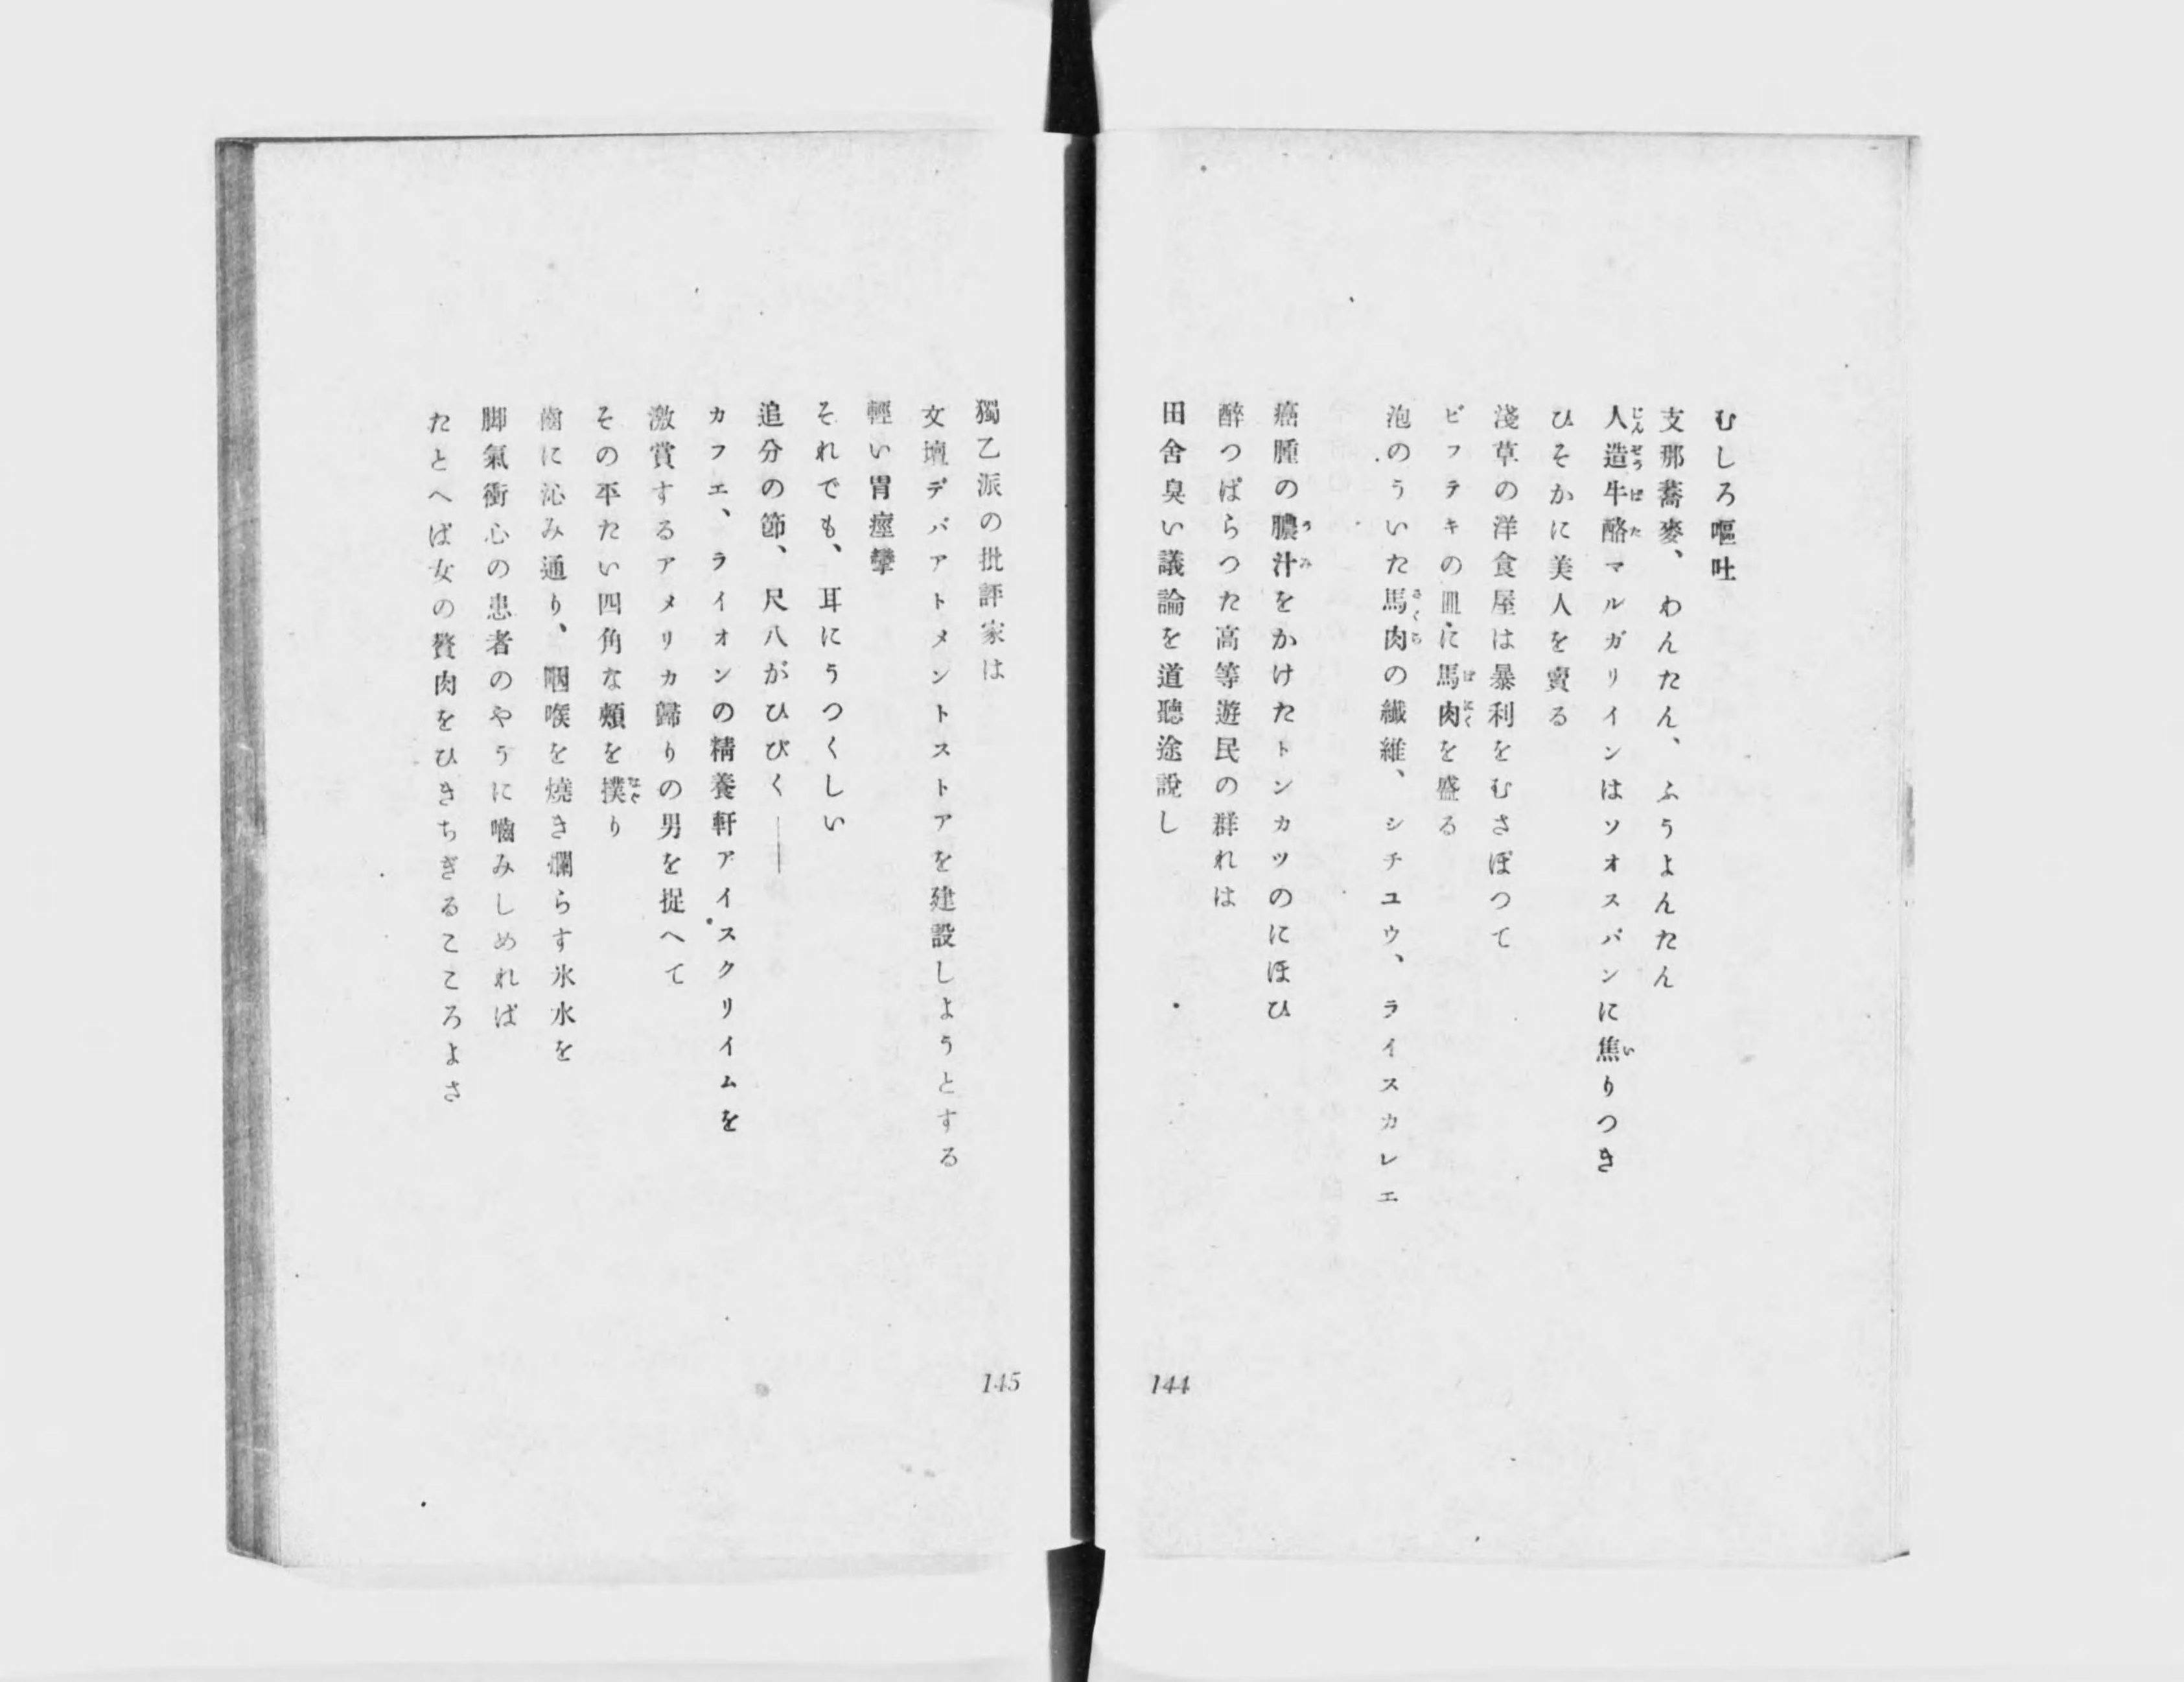 むしろ嘔吐
支那蕎麥、わんたん、ふうよんたん
人造牛酪マルガリインはソオスパンに焦りつき
ひそかに美人を賣る
淺草の洋食屋は暴利をむさぼつて
ビフテキの皿に馬肉を盛る
泡のういた馬肉の繊維、シチユウ、ライスカレエ
癌腫の膿汁をかけたトンカツのにほひ
醉つぱらつた高等遊民の群れは
田舍臭い議論を道聽途說し
144
獨乙派の批評家は
文壇デパアトメントストアを建設しようとする
輕い胃痙攣
それでも、耳にうつくしい
追分の節、尺八がひびく――
カフエ、ライオンの精養軒アイスクリイムを
激賞するアメリカ歸りの男を捉へて
その平たい四角な頰を撲り
齒に沁み通り、咽喉を燒き爛らす氷水を
脚氣衝心の患者のやうに嚙みしめれば
たとへば女の贅肉をひきちぎるこころよさ
145